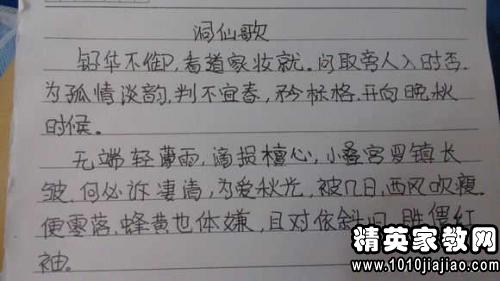 洞仙歌
铅华不御,看道家妆就.问取旁人入时否.
为孤情淡韵,判不宜春,矜标格.开向晚秋
时候.
无端轻薄雨,滴损檀心,小叠宫罗镇长
皱.何必诉凄清,为爱秋光,被几日,西风吹瘦.
便零落.蜂黄也体嫌,且对依斜 胜偎红
袖.
精英家教网
www.1010jiajiao.com